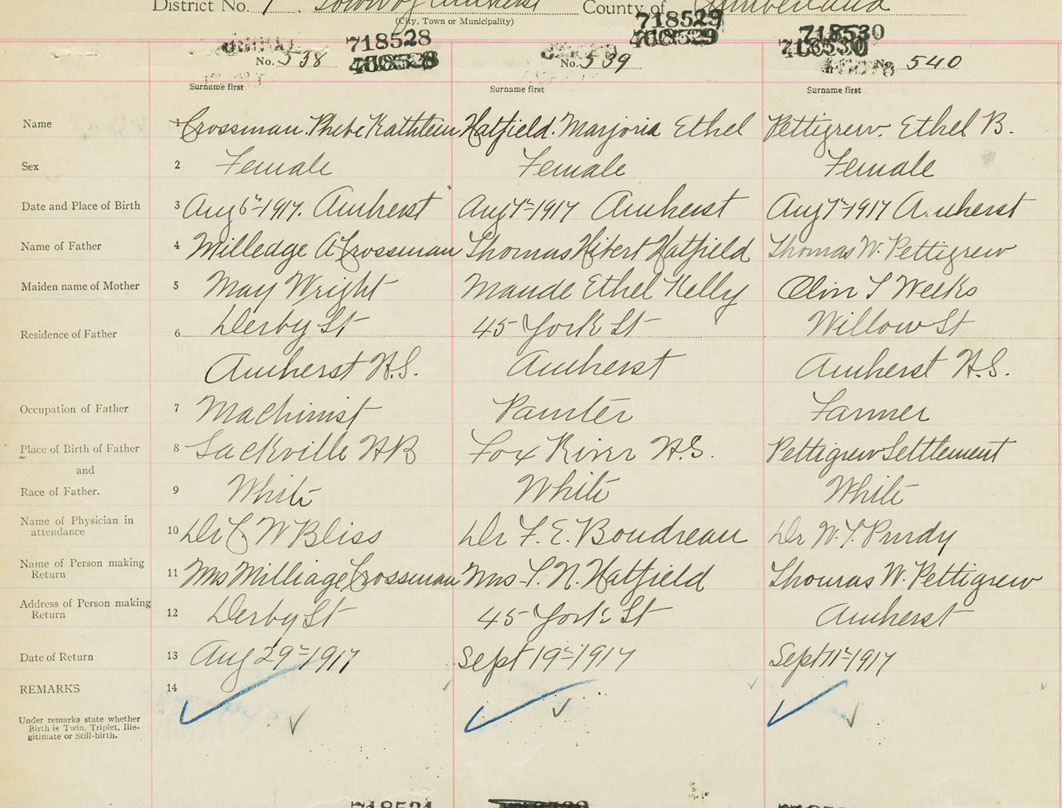 District No. 1 Town of Amherst County of Cumberland
(City, Town or Municipality)
718528 718529 718530
No. 538 No. 539 No. 540
Surname first Surname first Surname first
Name 1 Crossman. Phebe Kathleen Hatfield. Marjorie Ethel Pettigrew. Ethel B.
Sex 2 Female Female Female
Date and Place of Birth 3 Aug 6th 1917. Amherst Aug 7th 1917 Amherst Aug 7th 1917 Amherst
Name of Father 4 Milledge A Crossman Thomas Hibert Hatfield Thomas W. Pettigrew
Maiden name of Mother 5 May Wright Maude Ethel Kelly Weeks
Residence of Father 6 Derby St 45 York St Willow St
Amherst N.S. Amherst Amherst N.S.
Occupation of Father 7 Machinist Painter Farmer
Place of Birth of Father 8 Sackville NB Fox River N.S. Pettigrew Settlement
and
Race of Father. 9 White White White
Name of Physician in
attendance 10 Dr C W Bliss Dr F. E. Boudreau Dr W. T. Purdy
Name of Person making
Return 11 Mrs Milliage Crossman Mrs T. N. Hatfield Thomas W. Pettigrew
Address of Person making
Return 12 Derby St 45 York St Amherst
Date of Return 13 Aug 29th 1917 Sept 19th 1917 Sept 11th 1917
REMARKS 14
Under remarks state whether
Birth is Twin, Triplet, Ille-
gitimate or Still-birth.
718531